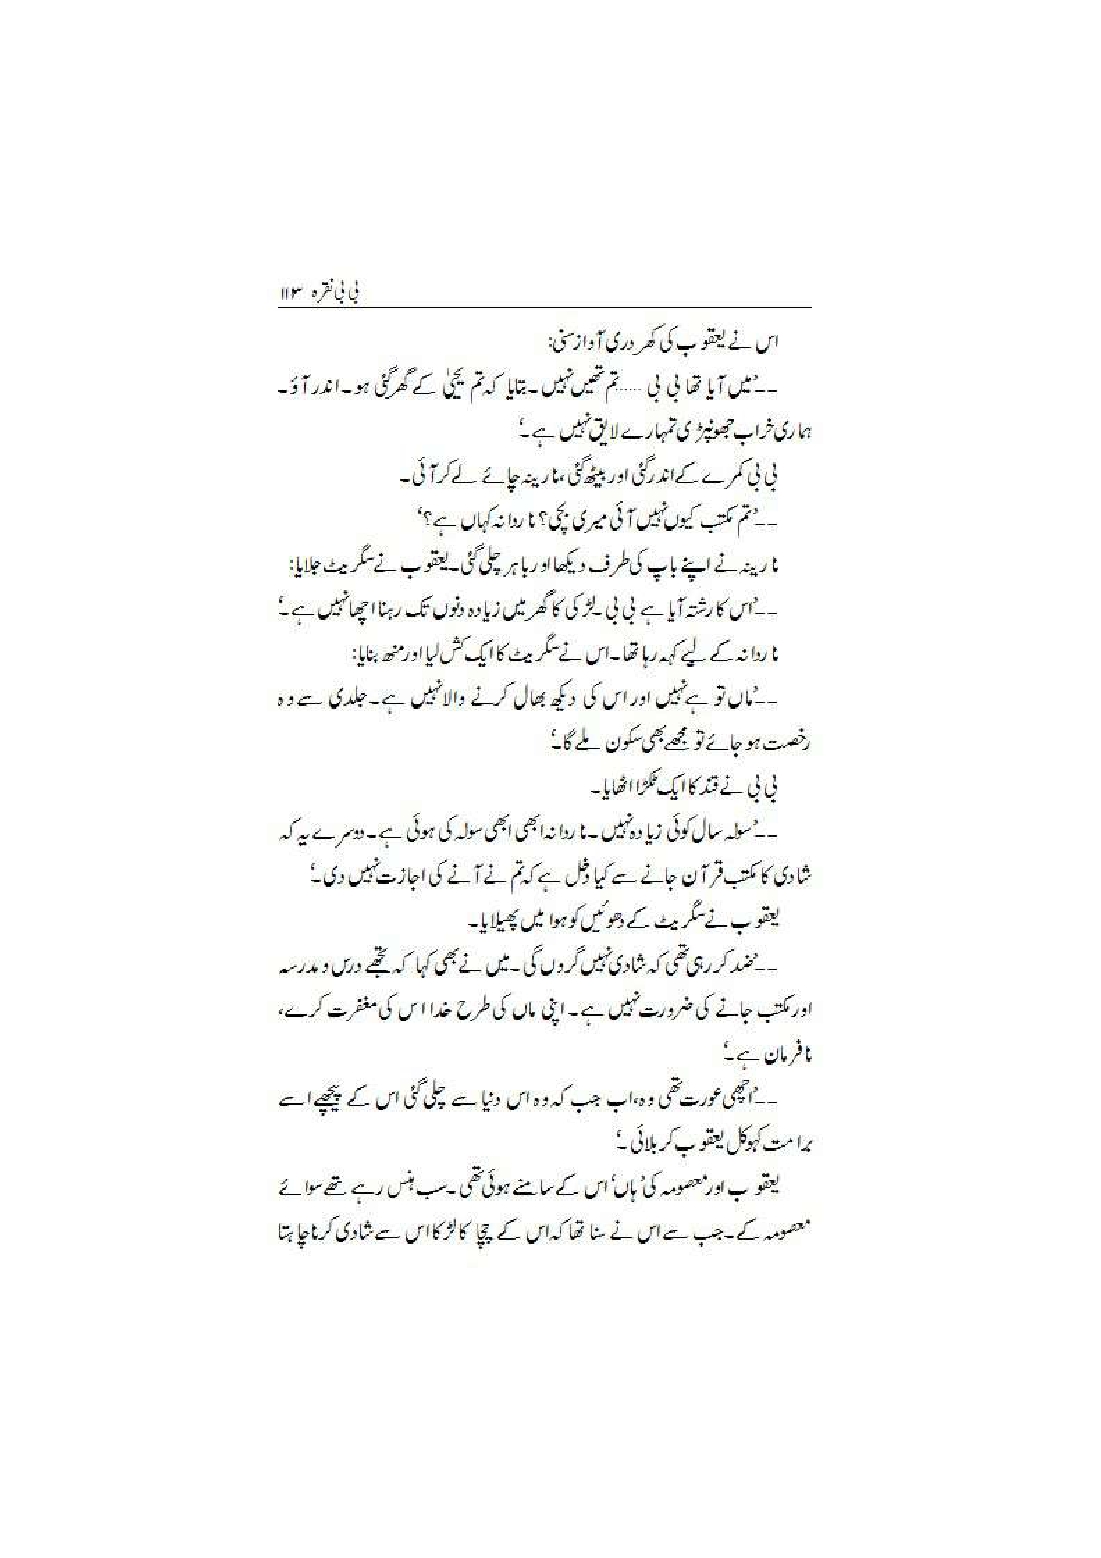 بی بی نقرہ ۱۱۳
اس نے یعقوب کی کھردری آواز سنی:
__’میں آیا تھا بی بی .....تم تھیں نہیں۔ بتایا کہ تم یحییٰ کے گھر گئی ہو۔ اندر آؤ۔
ہماری خراب جھونپڑی تمہارے لایق نہیں ہے۔‘
بی بی کمرے کے اندر گئی اور بیٹھ گئی، نارینہ چائے لے کر آئی۔
__’تم مکتب کیوں نہیں آئی میری بچی؟ ناردانہ کہاں ہے؟‘
نارینہ نے اپنے باپ کی طرف دیکھا اور باہر چلی گئی۔ یعقوب نے سگریٹ جلایا:
__’اس کا رشتہ آیا ہے بی بی۔ لڑکی کا گھر میں زیادہ دنوں تک رہنا اچھا نہیں ہے۔‘
ناردانہ کے لیے کہہ رہا تھا۔ اس نے سگریٹ کا ایک کش لیا اور منھ بنایا:
__’ماں تو ہے نہیں اور اس کی دیکھ بھال کرنے والا نہیں ہے۔ جلدی سے وہ
رخصت ہو جائے تو مجھے بھی سکون ملے گا۔‘
بی بی نے قند کا ایک ٹکڑا اٹھایا۔
__’سولہ سال کوئی زیادہ نہیں۔ ناردانہ ابھی ابھی سولہ کی ہوئی ہے۔ دوسرے یہ کہ
شادی کا مکتب قرآن جانے سے کیا دخل ہے کہ تم نے آنے کی اجازت نہیں دی۔‘
یعقوب نے سگریٹ کے دھوئیں کو ہوا میں پھیلایا۔
__’ضد کر رہی تھی کہ شادی نہیں کروں گی۔ میں نے بھی کہا کہ تجھے درس و مدرسہ
اور مکتب جانے کی ضرورت نہیں ہے۔ اپنی ماں کی طرح خدا اس کی مغفرت کرے،
نافرمان ہے۔‘
__’اچھی عورت تھی وہ، اب جب کہ وہ اس دنیا سے چلی گئی اس کے پیچھے اسے
برا مت کہو کل یعقوب کربلائی۔‘
یعقوب اور معصومہ کی ’ہاں‘ اس کے سامنے ہوئی تھی۔ سب ہنس رہے تھے سوائے
معصومہ کے۔ جب سے اس نے سنا تھا کہ اس کے چچا کا لڑکا اس سے شادی کرنا چاہتا